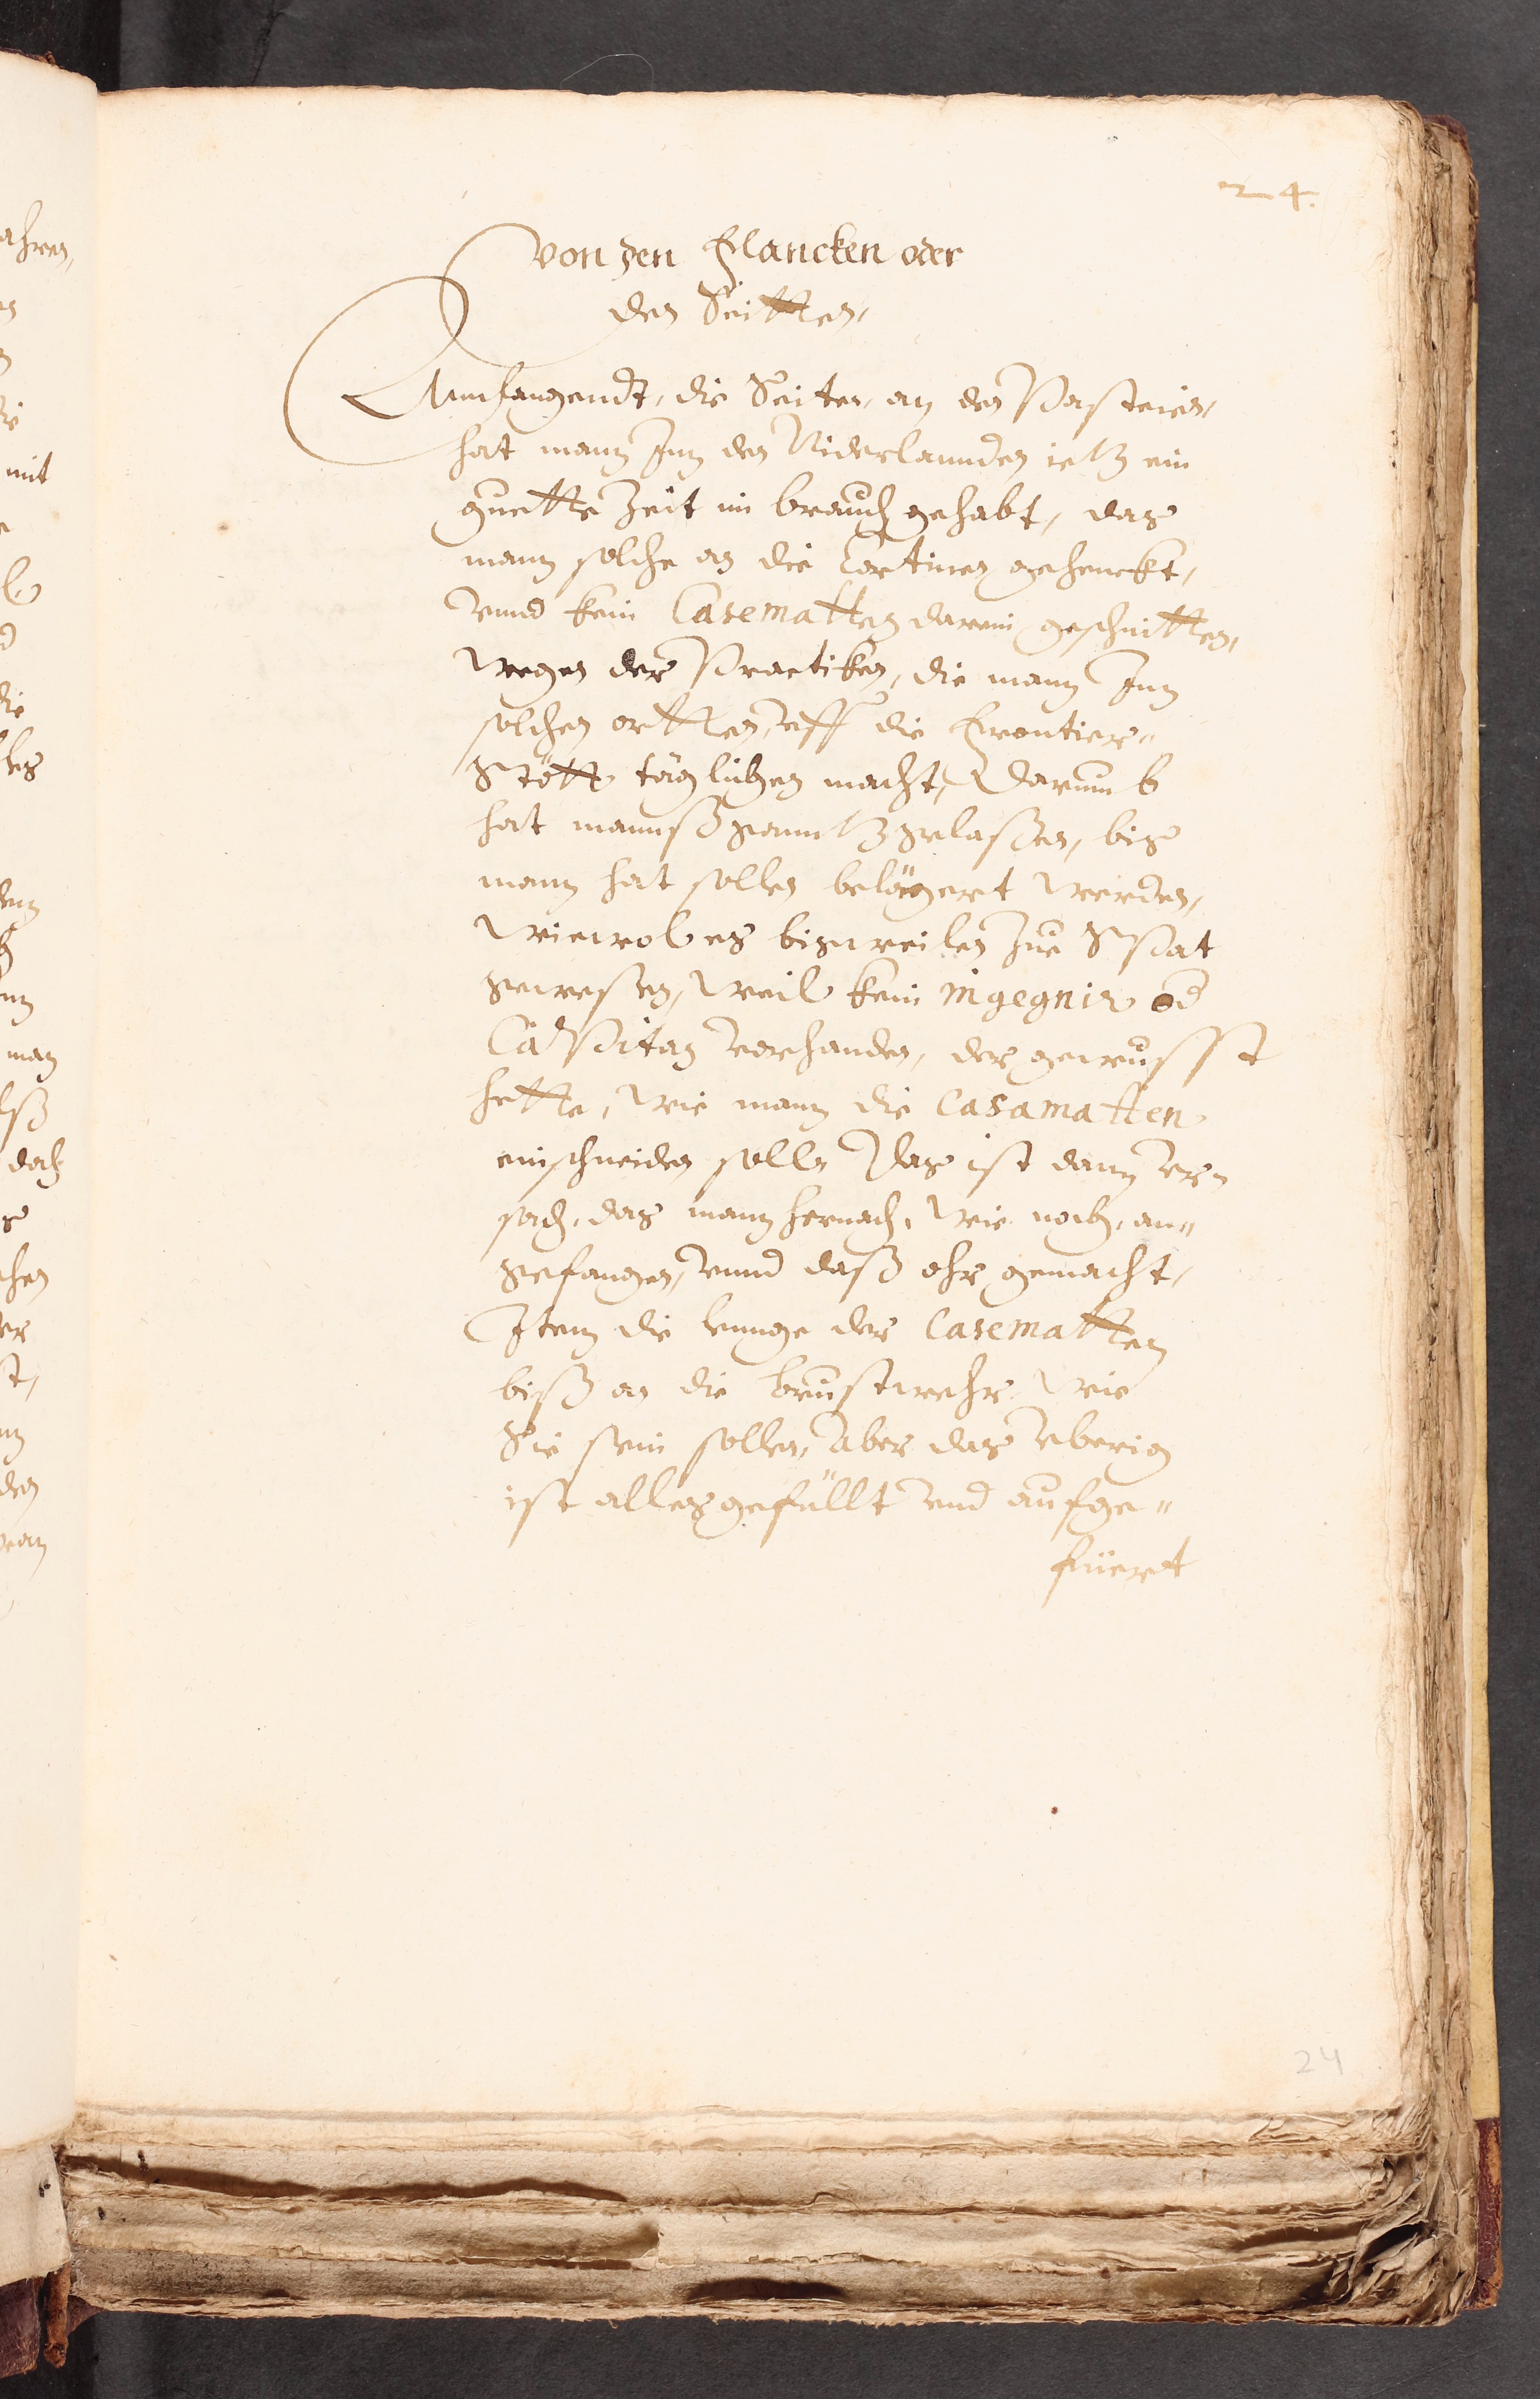 24.
Von den Flancken oder
den Seitten,
Annfangendt, die Seiten, an den Pasteien,
hat mann Inn den Niderlannden ietz ein
guette Zeit im brauch gehabt, das
mann solche an die Cortinen gehenckt,
vnnd kein Casematten darein geschnitten,
Wegen der Practiken, die mann Inn
solchen ortten, vff die Frontier=
Stött täglichen macht, Darumb
hat mannß ganntz gelaßen, bis
mann hat sollen belägert werden,
Wiewol es bisweilen Zue Spat
gewesen, Weil kein ingegnir od
Capitan vorhanden, der gewusst
hette, Wie mann die Casamatten
einschneiden soll, Das ist dann vr=
sach, das mann hernach, Wie noch, an=
gefangen, vnnd daß ohr gemacht,
Item die lennge der Casematten
biß an die brustwehr, Wie
Sie sein sollen, Aber das vberig
ist alles gefüllt vnd aufge=
füert
24
mit
die
man
doch